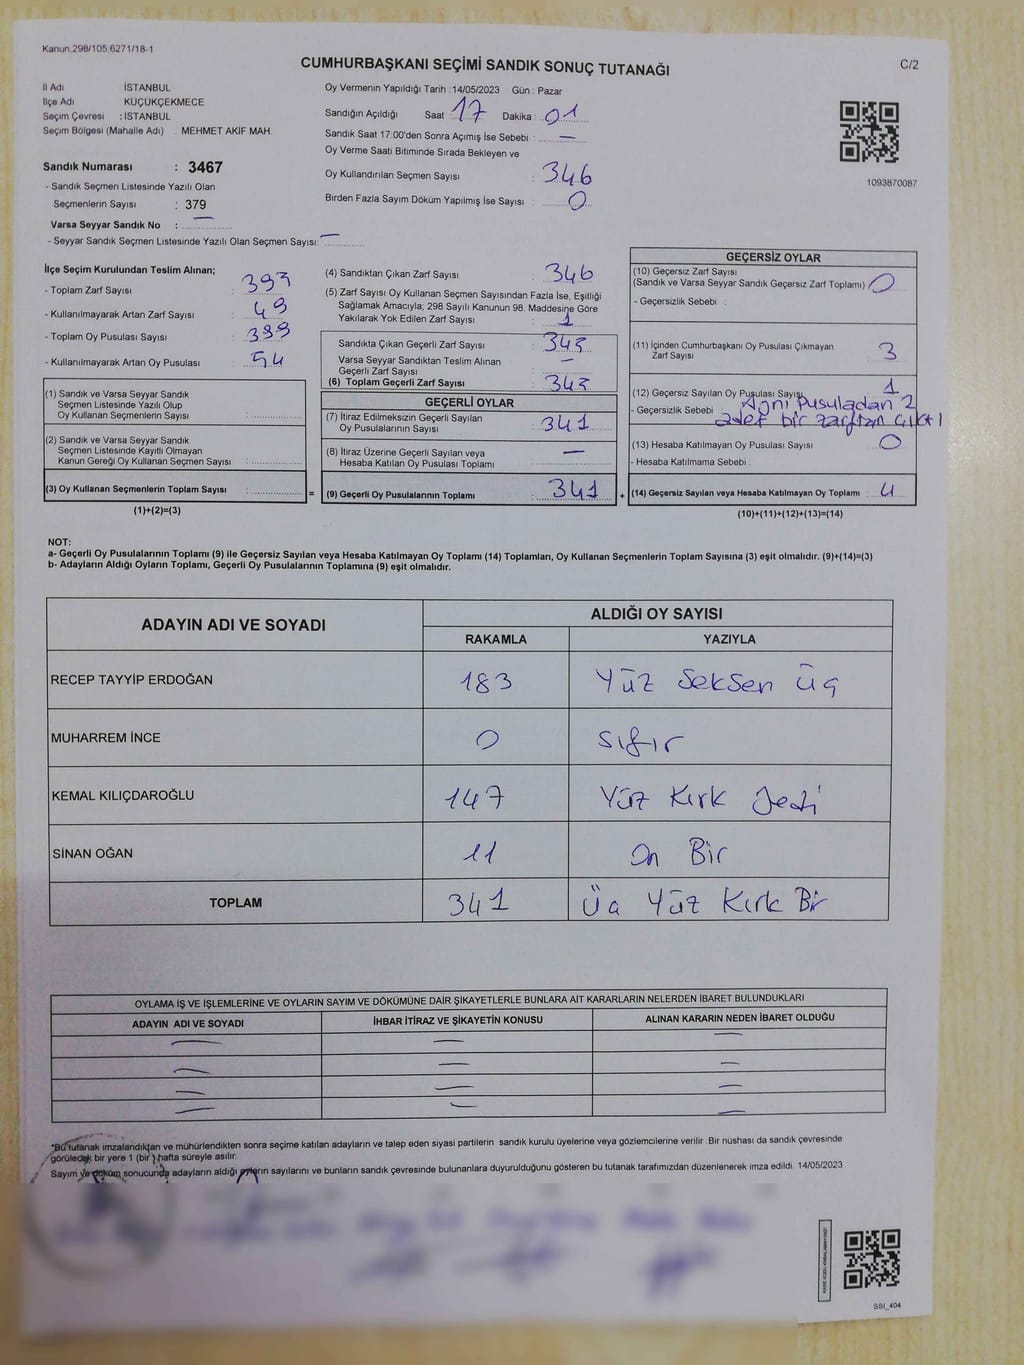 Kanun.298/105.6271/18-1
C/2
CUMHURBAŞKANI SEÇİMİ SANDIK SONUÇ TUTANAĞI
İl Adı İSTANBUL
İlçe Adı KÜÇÜKÇEKMECE
Seçim Çevresi : İSTANBUL
Seçim Bölgesi (Mahalle Adı) : MEHMET AKİF MAH.
Sandık Numarası : 3467
- Sandık Seçmen Listesinde Yazılı Olan
Seçmenlerin Sayısı : 379
Varsa Seyyar Sandık No : —
- Seyyar Sandık Seçmen Listesinde Yazılı Olan Seçmen Sayısı: —
Oy Vermenin Yapıldığı Tarih : 14/05/2023 Gün : Pazar
Sandığın Açıldığı Saat : 17 Dakika : 01
Sandık Saat 17:00'den Sonra Açımış İse Sebebi : —
Oy Verme Saati Bitiminde Sırada Bekleyen ve
Oy Kullandırılan Seçmen Sayısı : 346
Birden Fazla Sayım Döküm Yapılmış İse Sayısı : 0
1093870087
İlçe Seçim Kurulundan Teslim Alınan;
- Toplam Zarf Sayısı :
- Kullanılmayarak Artan Zarf Sayısı : 49
- Toplam Oy Pusulası Sayısı :
- Kullanılmayarak Artan Oy Pusulası : 54
(1) Sandık ve Varsa Seyyar Sandık
Seçmen Listesinde Yazılı Olup
Oy Kullanan Seçmenlerin Sayısı :
(2) Sandık ve Varsa Seyyar Sandık
Seçmen Listesinde Kayıtlı Olmayan
Kanun Gereği Oy Kullanan Seçmen Sayısı :
(3) Oy Kullanan Seçmenlerin Toplam Sayısı :
(1)+(2)=(3)
(4) Sandıktan Çıkan Zarf Sayısı : 346
(5) Zarf Sayısı Oy Kullanan Seçmen Sayısından Fazla İse, Eşitliği
Sağlamak Amacıyla; 298 Sayılı Kanunun 98. Maddesine Göre
Yakılarak Yok Edilen Zarf Sayısı : 1
Sandıkta Çıkan Geçerli Zarf Sayısı : 345
Varsa Seyyar Sandıktan Teslim Alınan
Geçerli Zarf Sayısı : —
(6) Toplam Geçerli Zarf Sayısı : 345
GEÇERLİ OYLAR
(7) İtiraz Edilmeksizin Geçerli Sayılan
Oy Pusulalarının Sayısı : 341
(8) İtiraz Üzerine Geçerli Sayılan veya
Hesaba Katılan Oy Pusulası Toplamı : —
= (9) Geçerli Oy Pusulalarının Toplamı : 341 +
GEÇERSİZ OYLAR
(10) Geçersiz Zarf Sayısı
(Sandık ve Varsa Seyyar Sandık Geçersiz Zarf Toplamı) : 0
- Geçersizlik Sebebi :
(11) İçinden Cumhurbaşkanı Oy Pusulası Çıkmayan
Zarf Sayısı : 3
(12) Geçersiz Sayılan Oy Pusulası Sayısı 1
- Geçersizlik Sebebi : Aynı Pusuladan 2
adet bir zarftan çıktı
(13) Hesaba Katılmayan Oy Pusulası Sayısı : 0
- Hesaba Katılmama Sebebi :
(14) Geçersiz Sayılan veya Hesaba Katılmayan Oy Toplamı : 4
(10)+(11)+(12)+(13)=(14)
NOT:
a- Geçerli Oy Pusulalarının Toplamı (9) ile Geçersiz Sayılan veya Hesaba Katılmayan Oy Toplamı (14) Toplamları, Oy Kullanan Seçmenlerin Toplam Sayısına (3) eşit olmalıdır. (9)+(14)=(3)
b- Adayların Aldığı Oyların Toplamı, Geçerli Oy Pusulalarının Toplamına (9) eşit olmalıdır.
ADAYIN ADI VE SOYADI ALDIĞI OY SAYISI
RAKAMLA YAZIYLA
RECEP TAYYİP ERDOĞAN 183 Yüz Seksen Üç
MUHARREM İNCE 0 Sıfır
KEMAL KILIÇDAROĞLU 147 Yüz Kırk Yedi
SİNAN OĞAN 11 On Bir
TOPLAM 341 Üç Yüz Kırk Bir
OYLAMA İŞ VE İŞLEMLERİNE VE OYLARIN SAYIM VE DÖKÜMÜNE DAİR ŞİKAYETLERLE BUNLARA AİT KARARLARIN NELERDEN İBARET BULUNDUKLARI
ADAYIN ADI VE SOYADI İHBAR İTİRAZ VE ŞİKAYETİN KONUSU ALINAN KARARIN NEDEN İBARET OLDUĞU
— — —
— — —
— — —
— — —
*Bu tutanak imzalandıktan ve mühürlendikten sonra seçime katılan adayların ve talep eden siyasi partilerin sandık kurulu üyelerine veya gözlemcilerine verilir. Bir nüshası da sandık çevresinde
görülecek bir yere 1 (bir) hafta süreyle asılır.
Sayım ve döküm sonucunda adayların aldığı oyların sayılarını ve bunların sandık çevresinde bulunanlara duyurulduğunu gösteren bu tutanak tarafımızdan düzenlenerek imza edildi. 14/05/2023
SSI_404